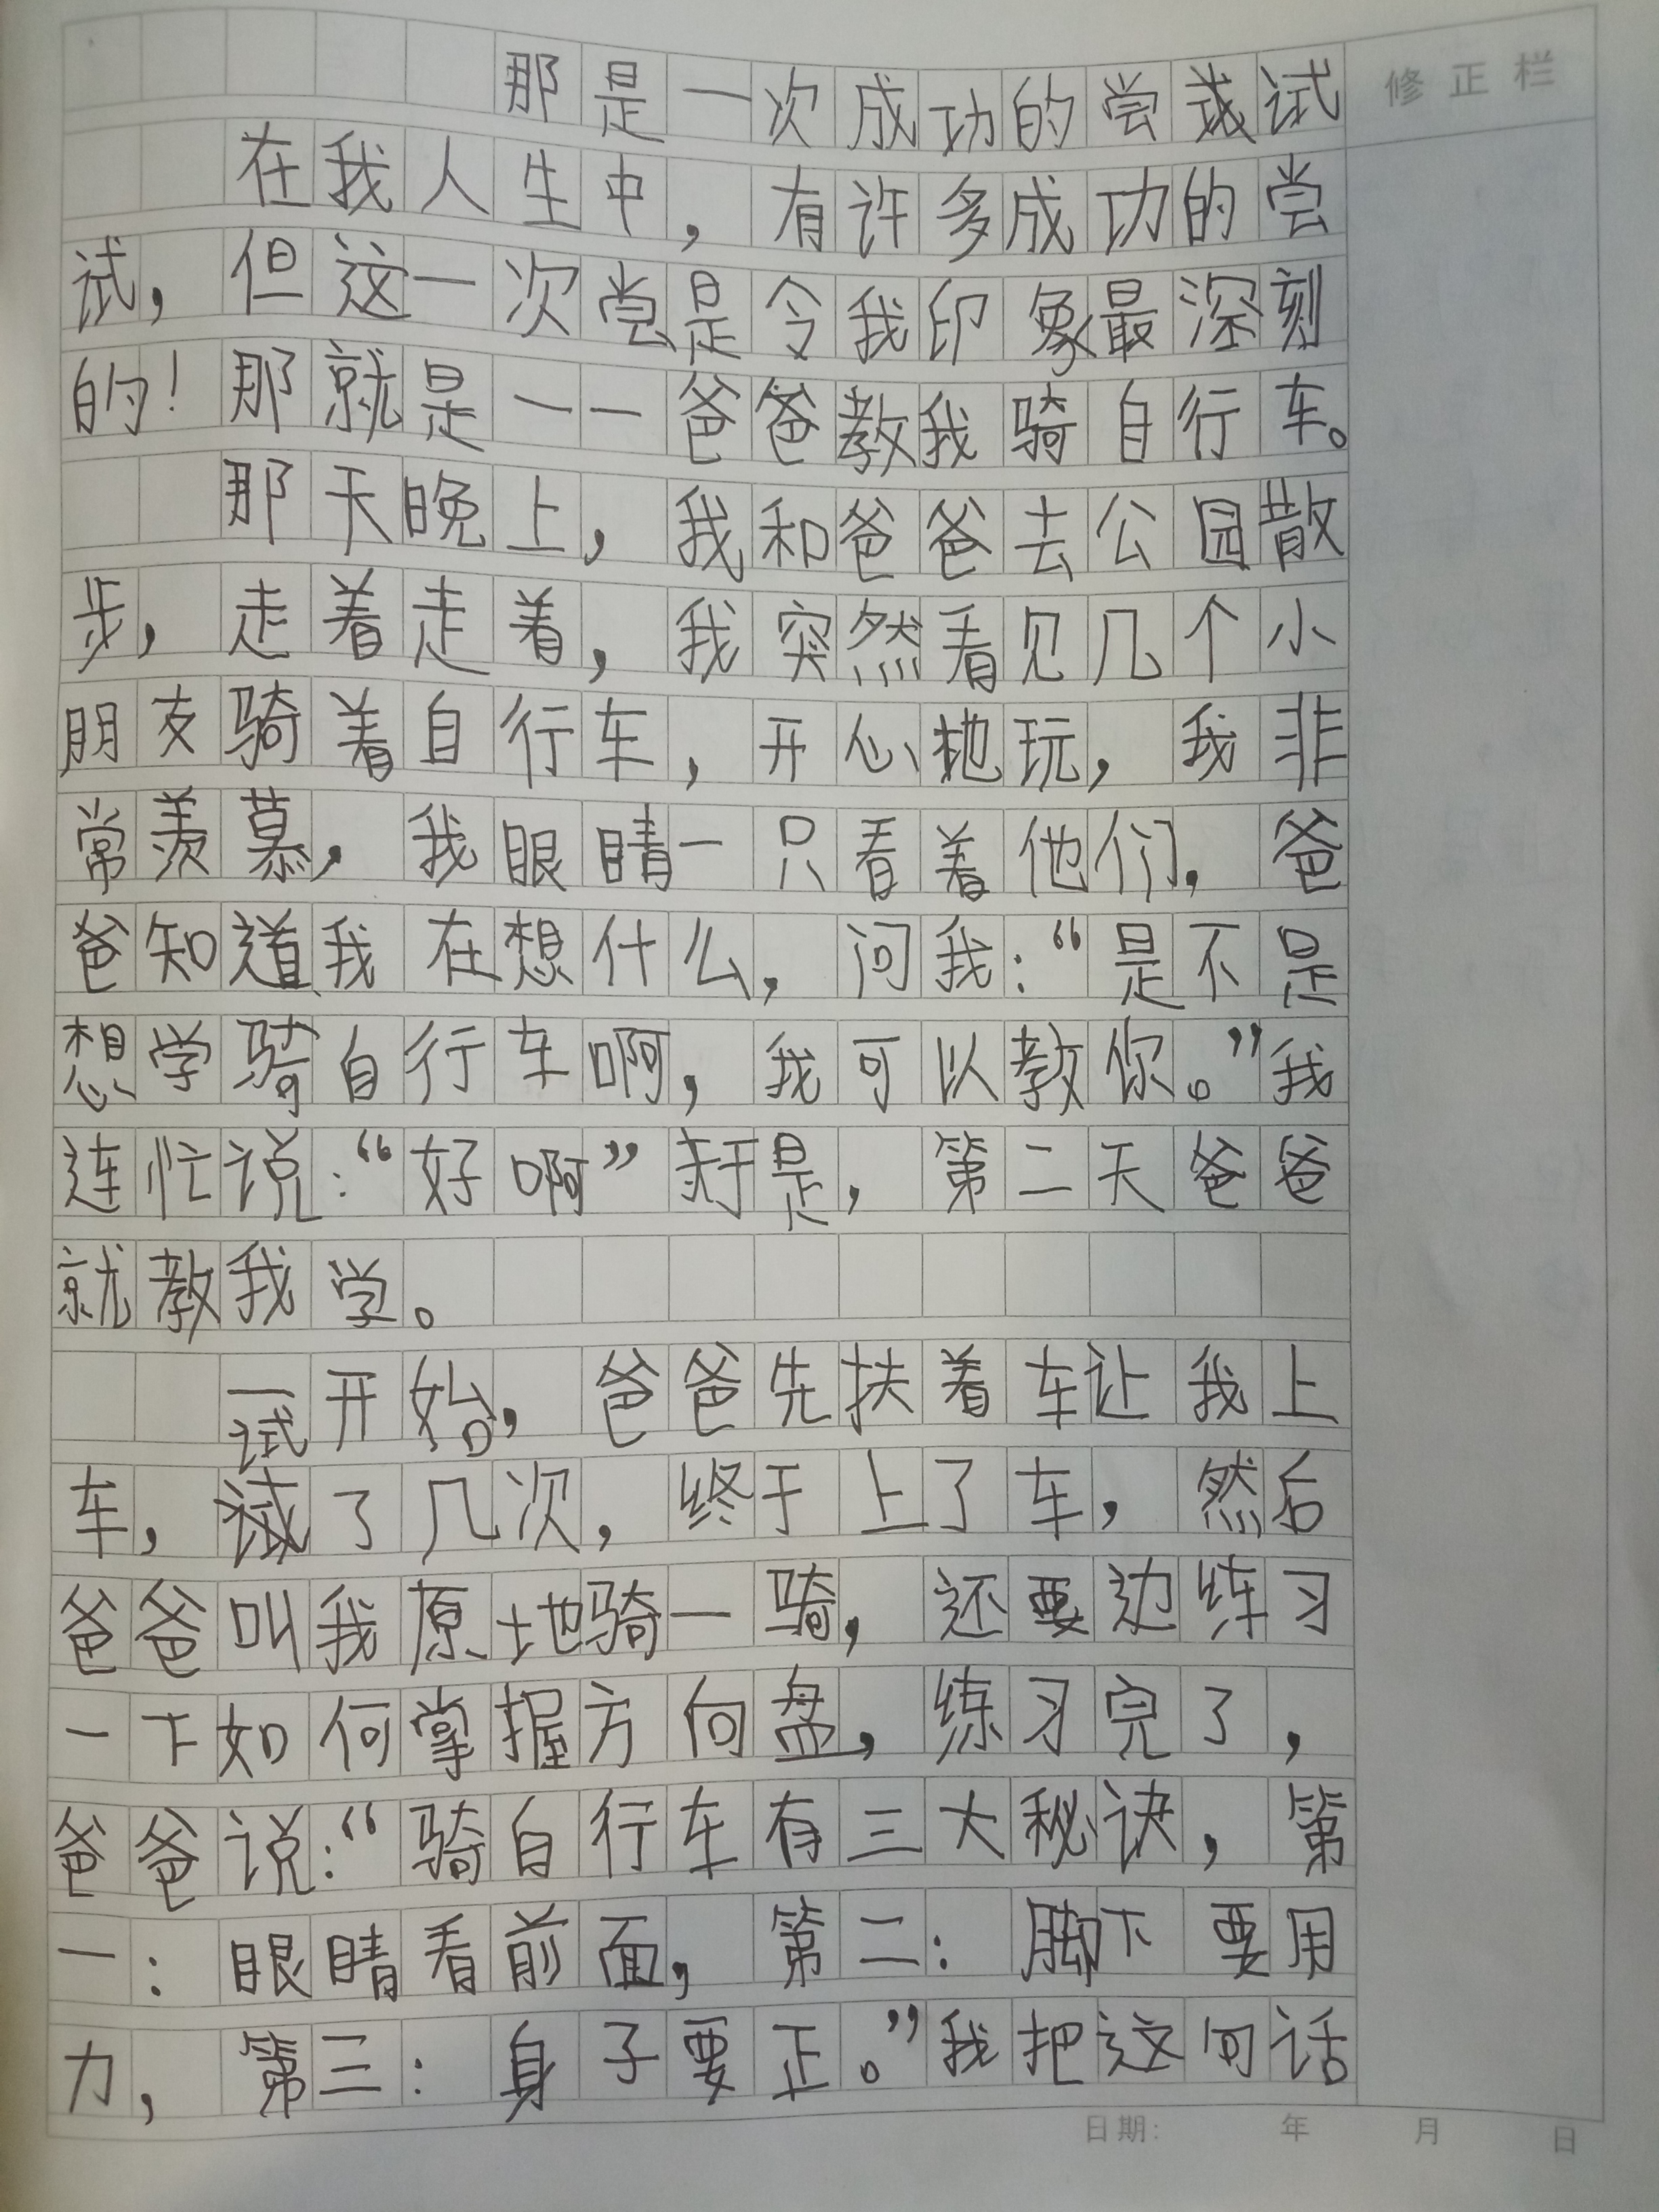 那是一次成功的尝试
修正栏
在我人生中，有许多成功的尝
试，但这一次尝是令我印象最深刻
的！那就是一一爸爸教我骑自行车。
那天晚上，我和爸爸去公园散
步，走着走着，我突然看见几个小
朋友骑着自行车，开心地玩，我非
常羡慕，我眼睛一只看着他们，爸
爸知道我在想什么，问我：“是不是
想学骑自行车啊，我可以教你。”我
连忙说：“好啊”于是，第二天爸爸
就教我学。
一开始，爸爸先扶着车让我上
车，试了几次，终于上了车，然后
爸爸叫我原地骑一骑，还要边练习
一下如何掌握方向盘，练习完了，
爸爸说：“骑自行车有三大秘诀，第
一：眼睛看前面，第二：脚下要用
力，第三：身子要正。”我把这句话
日期： 年 月 日